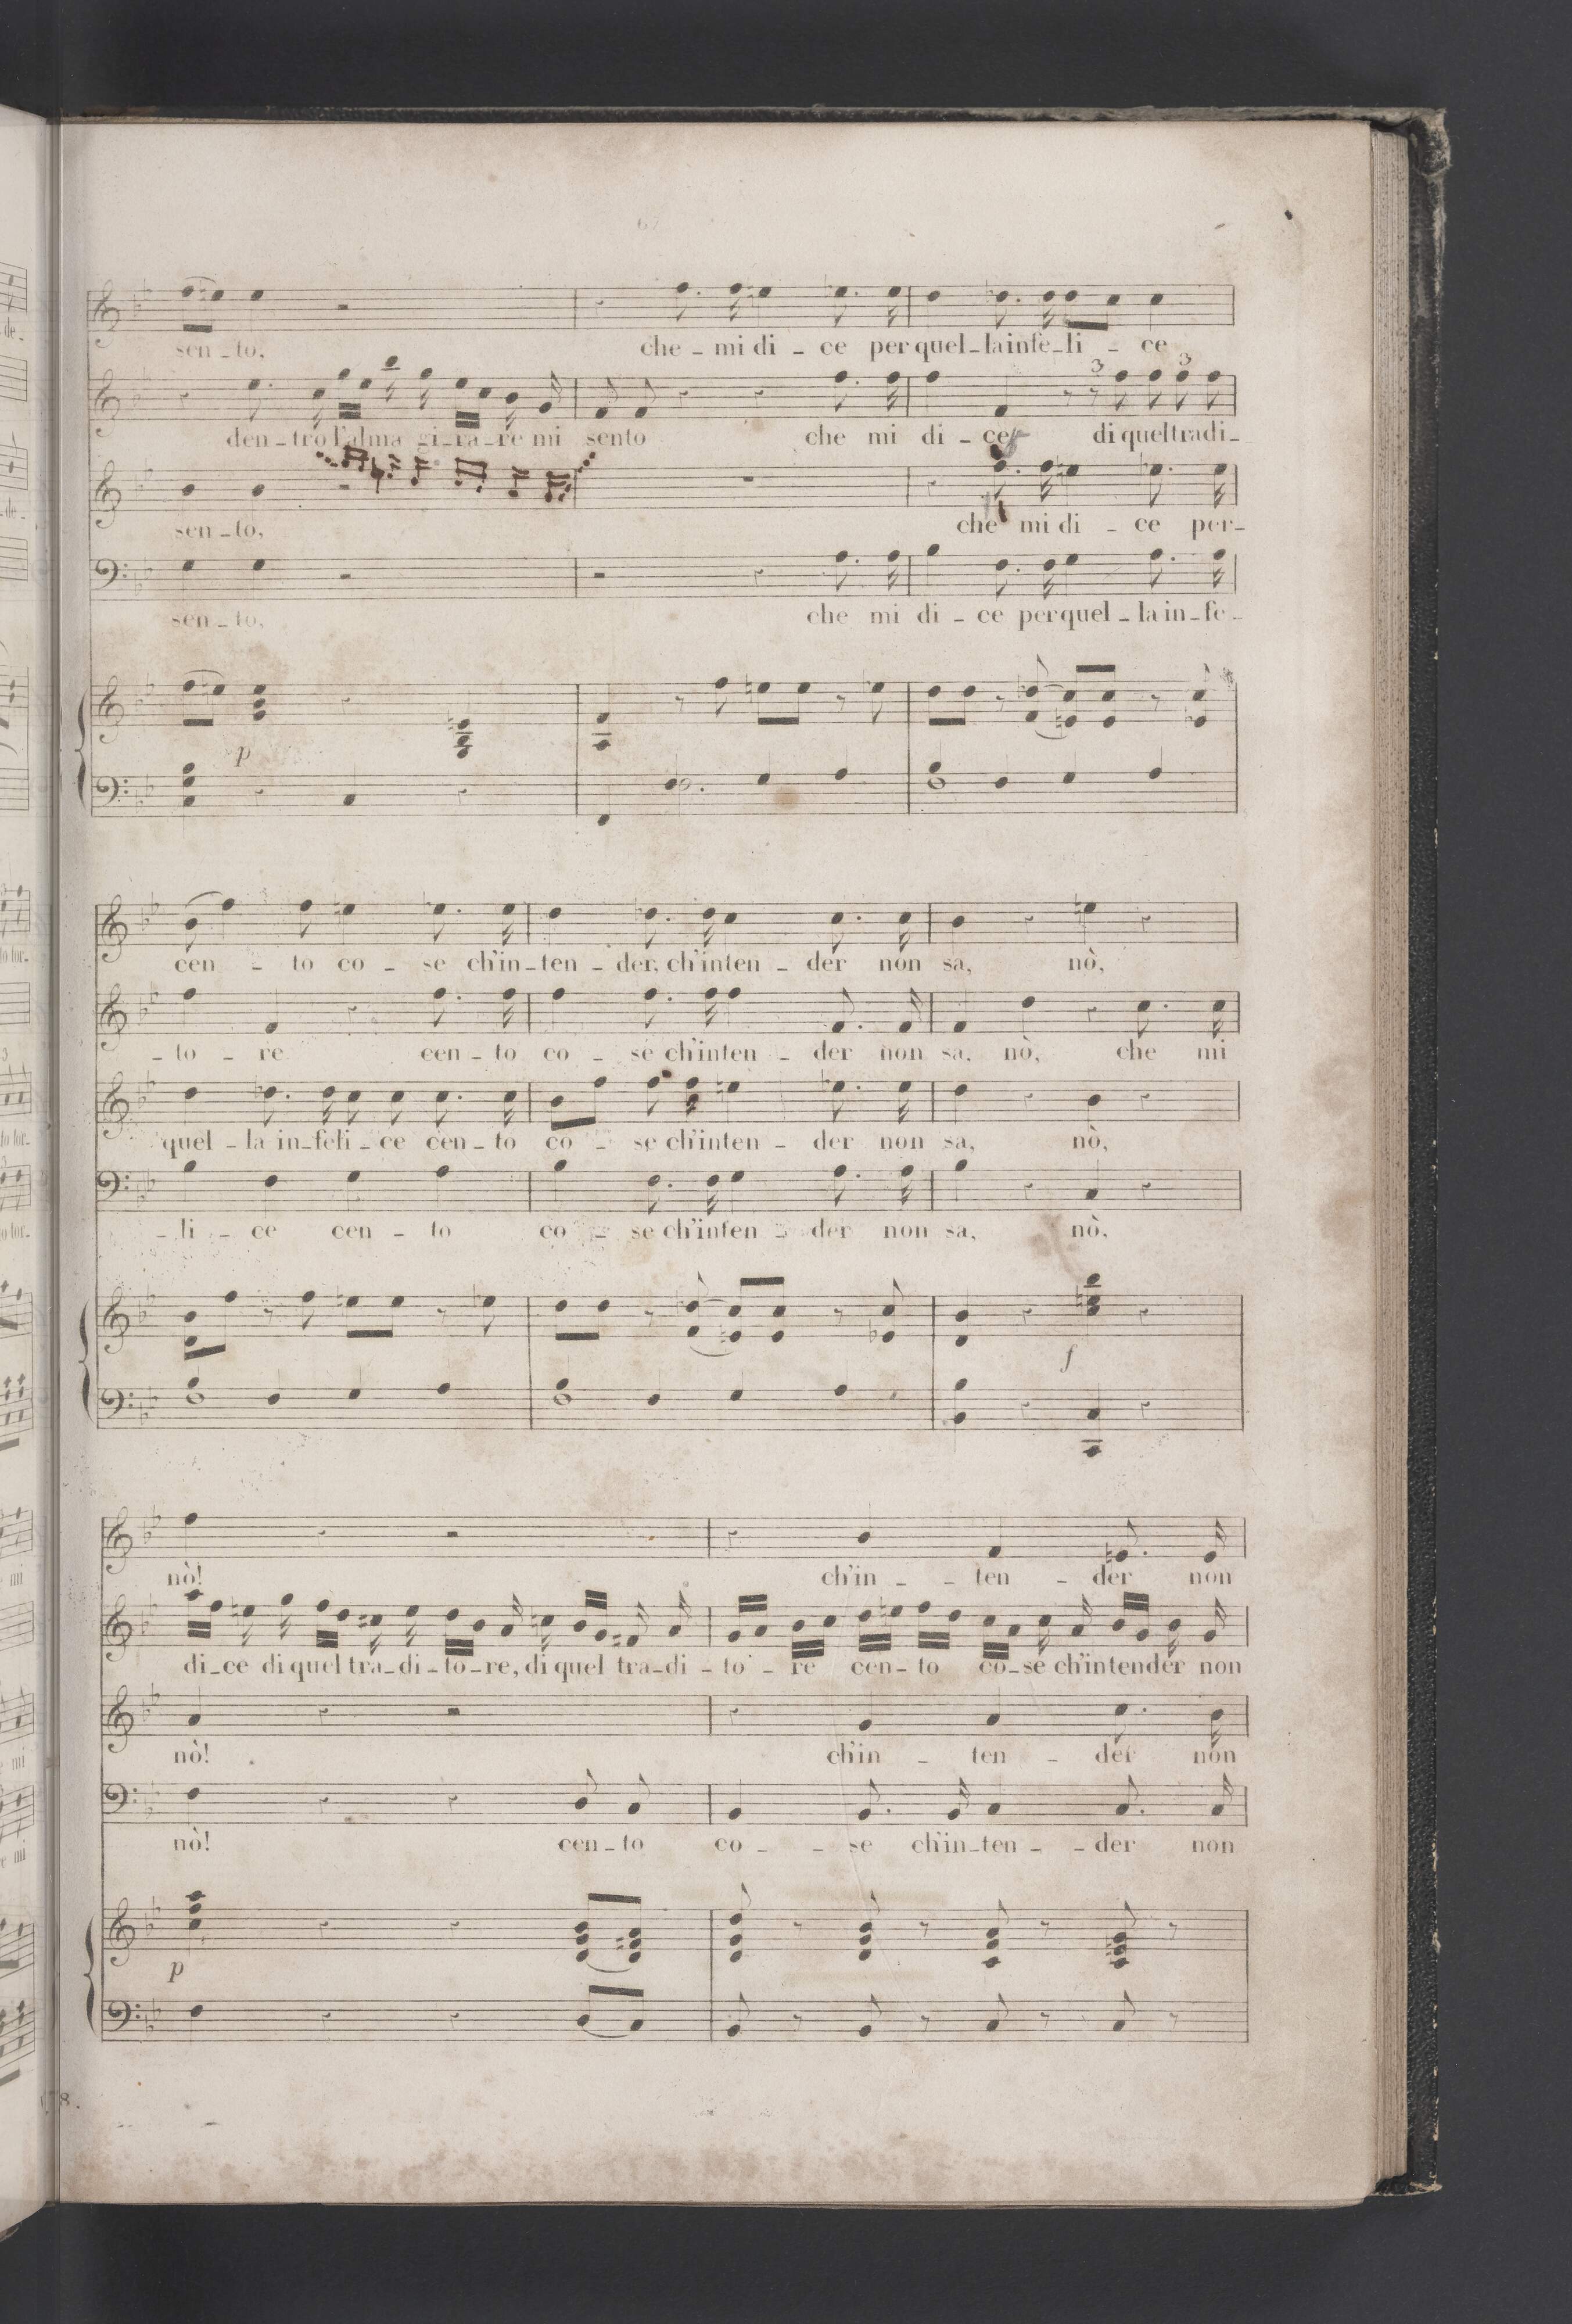 67
sen - to, che - mi di - ce per quel - la infe - li - ce
den - tro l'alma gi - ra - re mi sento che mi di - ce di quel tradi -
sen - to, che mi di - ce per -
sen - to, che mi di - ce per quel - la in - fe -
p
cen - to co - se ch'in - ten - der, ch'inten - der non sa, nò,
- to - re cen - to co - se ch'inten - der non sa, nò, che mi
quel - la in - feli - ce cen - to co - se ch'inten - der non sa, nò,
- li - ce cen - to co - se ch'inten - der non sa, nò,
f
nò! ch'in - ten - der non
di - ce di quel tra - di - to - re, di quel tra - di - to - re cen - to co - se ch'intender non
nò! ch'in - ten - der non
nò! cen - to co - se ch'in - ten - der non
p